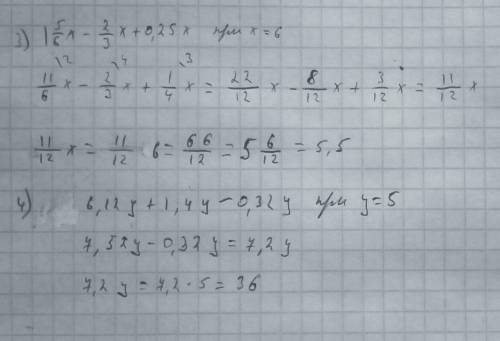 3) 1 5/6 x - 2/3 x + 0,25 x при x = 6
11/6 x - 2/3 x + 1/4 x = 22/12 x - 8/12 x + 3/12 x = 11/12 x
11/12 x = 11/12 · 6 = 66/12 = 5 6/12 = 5,5
4) 6,12 y + 1,4 y - 0,32 y при y = 5
7,52 y - 0,32 y = 7,2 y
7,2 y = 7,2 · 5 = 36